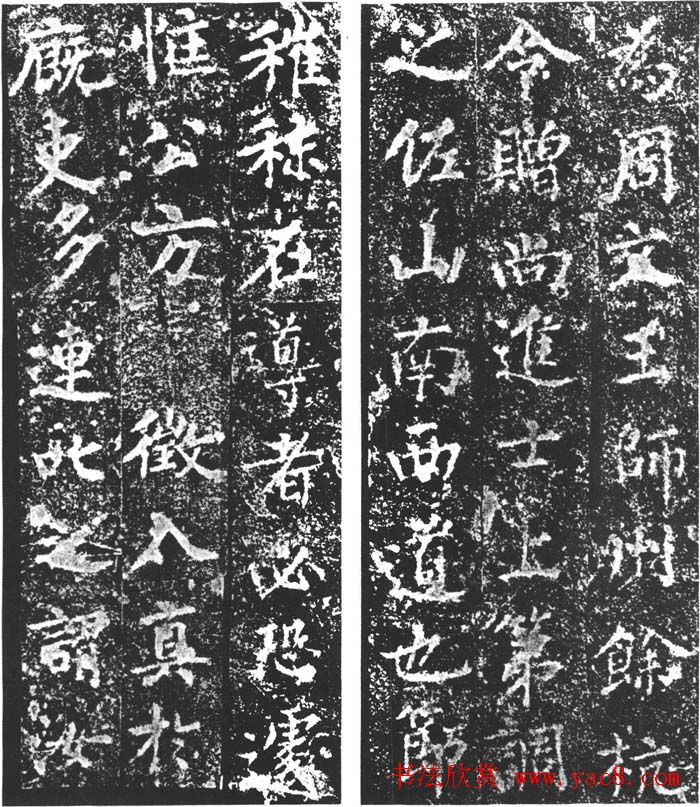 為周文王師州餘杭
令贈尚進士上第調
之佐山南西道也節
稚秣在導者必恐處
恇公方 徵入真於
廐吏多連叱之謂汝
书法欣赏 www.yac8.com